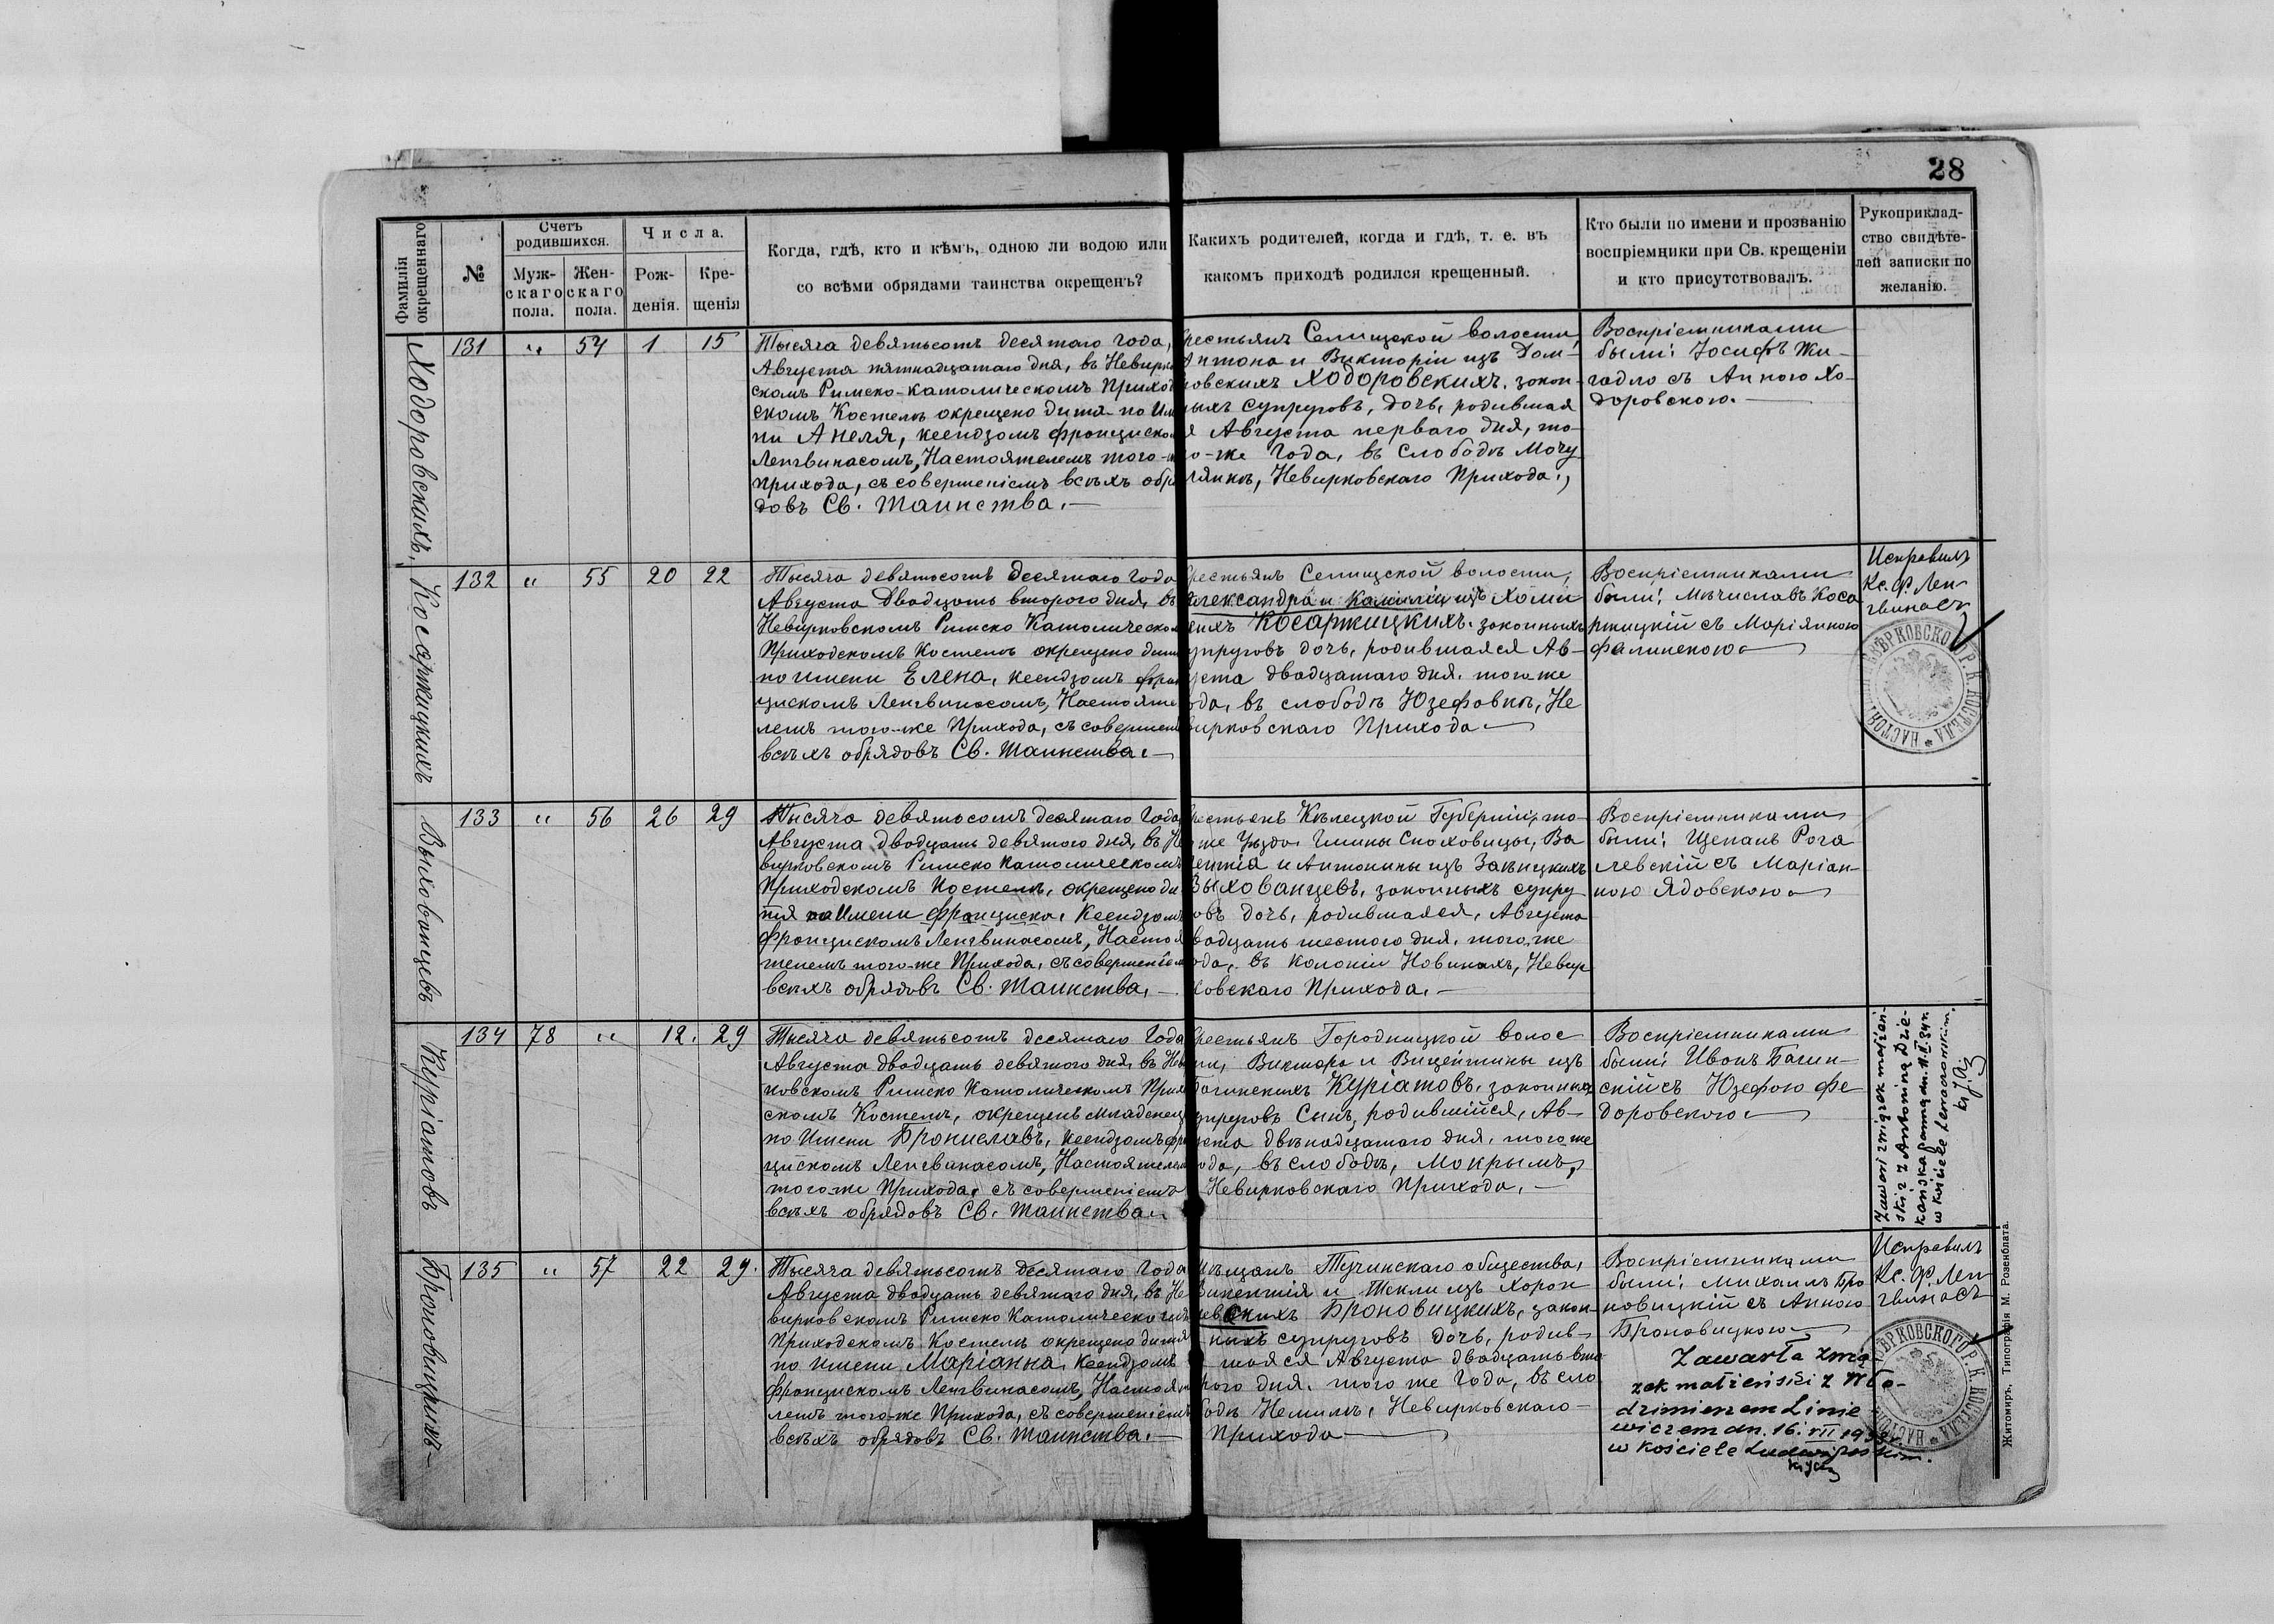 28
Фамилія окрещеннаго
№
Счетъ родившихся.
Мужскаго пола.
Женскаго пола.
Числа.
Рожденія.
Крещенія
Когда, гдѣ, кто и кѣмъ, одною ли водою или
со всѣми обрядами таинства окрещенъ?
Какихъ родителей, когда и гдѣ, т. е. въ
какомъ приходѣ родился крещенный.
Кто были по имени и прозванію
воспріемники при Св. крещеніи
и кто присутствовалъ.
Рукоприклад-
ство свидѣте-
лей записки по
желанію.
Ходоровскихъ.
131 „ 54 1 15
Тысяча девятьсотъ десятаго года,
Августа пятнадцатаго дня, въ Невирко
скомъ Римско-католическомъ Приход
скомъ Костелѣ окрещено дитя по Им
ни Анеля, ксендзомъ Францискомъ
Ленгвинасомъ, Настоятелемъ того-ж
Прихода, съ совершеніемъ всѣхъ обр
довъ Св. Таинства.—
рестьянъ Селищской волости,
Антона и Викторіи изъ Дом-
ровскихъ Ходоровскихъ. закон-
ныхъ супруговъ, дочь, родившая
я Августа перваго дня, то-
го-же Года, въ Слободѣ Мочу
лянкѣ, Невирковскаго Прихода.,
Воспріемниками
были: Іосифъ Жи-
гадло съ Анною Хо-
доровскою.—
Косаржицкихъ
132 „ 55 20 22
Тысяча девятьсотъ десятаго Года
Августа Двадцать втораго дня, въ
Невирковскомъ Римско Католическом
Приходскомъ Костелѣ окрещено дитя
по имени Елена, ксендзомъ Фран
цискомъ Ленгвинасомъ, Настояте
лемъ того-же Прихода, съ соверше
всѣхъ обрядовъ Св. Таинства.—
рестьянъ Селищской волости,
Александра и Камиліи изъ Хоми
кихъ Косаржицкихъ. законныхъ
супруговъ дочь, родившаяся Ав-
густа двадцатаго дня. того же
ода, въ слободѣ Юзефовкѣ, Не
вирковскаго Прихода—
Воспріемниками
были: Мѣчиславъ Коса
ржицкій съ Маріянною
Фалинскою—
Исправилъ
Кс. Ф. Лен-
гвинасъ
Выхованцевъ
133 „ 56 26 29
Тысяча девятьсотъ десятаго Года
Августа двадцать девятого дня, въ Не
вирковскомъ Римско Католическомъ
Приходскомъ Костелѣ, окрещено ди
тя по Имени Франциска, Ксендзомъ
Францискомъ Ленгвинасомъ, Настоя
телемъ того-же Прихода, съ совершеніем
всѣхъ обрядовъ Св. Таинства.—
рестьянъ Кѣлецкой Губерніи, то-
же Уѣзда. Гмины Сноховицы, Ва
лентія и Антонины изъ
Выхованцевъ, законныхъ супру
овъ дочь, родившаяся, Августа
вадцать шестого дня. того же
ода, въ колоніи Новинахъ, Невир
ковскаго Прихода.—
Воспріемниками
были: Щепанъ Рога
левскій съ Маріан-
ною Ядовскою—
Куріатовъ
134 78 „ 12. 29
Тысяча девятьсотъ десятаго Года
Августа двадцать девятого дня, въ Нев
ковскомъ Римско Католическомъ Прих
скомъ Костелѣ, окрещенъ младенец
по Имени Брониславъ, ксендзомъ Фр
цискомъ Ленгвинасомъ, Настоятелем
того-же Прихода, съ совершеніемъ
всѣхъ обрядовъ Св. Таинства.—
рестьянъ Городницкой волос
ти, Виктора и Винцентины изъ
Багинскихъ Куріатовъ. законныхъ
супруговъ Сынъ, родившійся, Ав-
густа двѣнадцатаго дня. того же
ода, въ слободѣ, Мокрымъ,
Невирковскаго Прихода.—
Воспріемниками
были: Иванъ Багин-
скій съ Юзефою Фе
доровскою—
Zawarł związek małżeń-
ski z Antoniną Dzie-
kańską
w kościele
Броновицкихъ
135 „ 57 22 29.
Тысяча девятьсотъ десятаго Года
Августа двадцать девятаго дня, въ Не
вирковскомъ Римско Католическомъ
Приходскомъ Костелѣ окрещено дитя
по имени Маріанна, Ксендзомъ
Францискомъ Ленгвинасомъ, Настоят
лемъ того-же Прихода, съ совершеніемъ
всѣхъ обрядовъ Св. Таинства.—
мѣщанъ Тучинскаго общества,
Викентія и Теклы изъ Хорон
жевскихъ Броновицкихъ, закон-
ныхъ супруговъ дочь, родив-
шаяся Августа двадцать вто
рого дня. того же Года, въ сло
бодѣ Немиль, Невирковскаго
Прихода—
Воспріемниками
были: Михаилъ Бро
новицкій съ Анною
Броновицкою—
Исправилъ
Кс. Ф. Лен
гвинасъ
Zawarła zwią-
zek małżeński z Wło-
dzimierzem Linie
wiczem dn. 16. VII 193
w kościele Ludwipolskim.
Житомиръ, Типографія М. Розенблата.